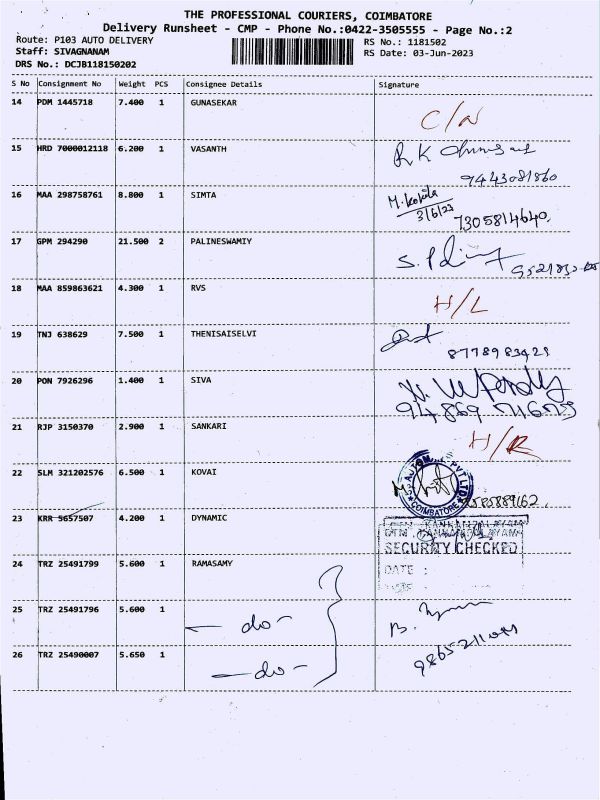 THE PROFESSIONAL COURIERS, COIMBATORE
Delivery Runsheet - CMP - Phone No.:0422-3505555 - Page No.:2
Route: P103 AUTO DELIVERY
RS No.: 1181502
Staff: SIVAGNANAM
RS Date: 03-Jun-2023
DRS No.: DCJB118150202
S No Consignment No Weight PCS Consignee Details Signature
14 PDM 1445718 7.400 1 GUNASEKAR
15 HRD 7000012118 6.200 1 VASANTH
R K
9443081860
16 MAA 298758761 8.800 1 SIMTA M. Kokila
3/6/23
7305814640.
17 GPM 294290 21.500 2 PALINESWAMIY
18 MAA 859863621 4.300 1 RVS H/L
19 TNJ 638629 7.500 1 THENISAISELVI
8778983429
20 PON 7926296 1.400 1 SIVA
21 RJP 3150370 2.900 1 SANKARI
22 SLM 321202576 6.500 1 KOVAI
PVT LTD
COIMBATORE
23 KRR 5657507 4.200 1 DYNAMIC
SECURITY CHECKED
DATE :
24 TRZ 25491799 5.600 1 RAMASAMY
25 TRZ 25491796 5.600 1 - do - B.
26 TRZ 25490007 5.650 1 - do -